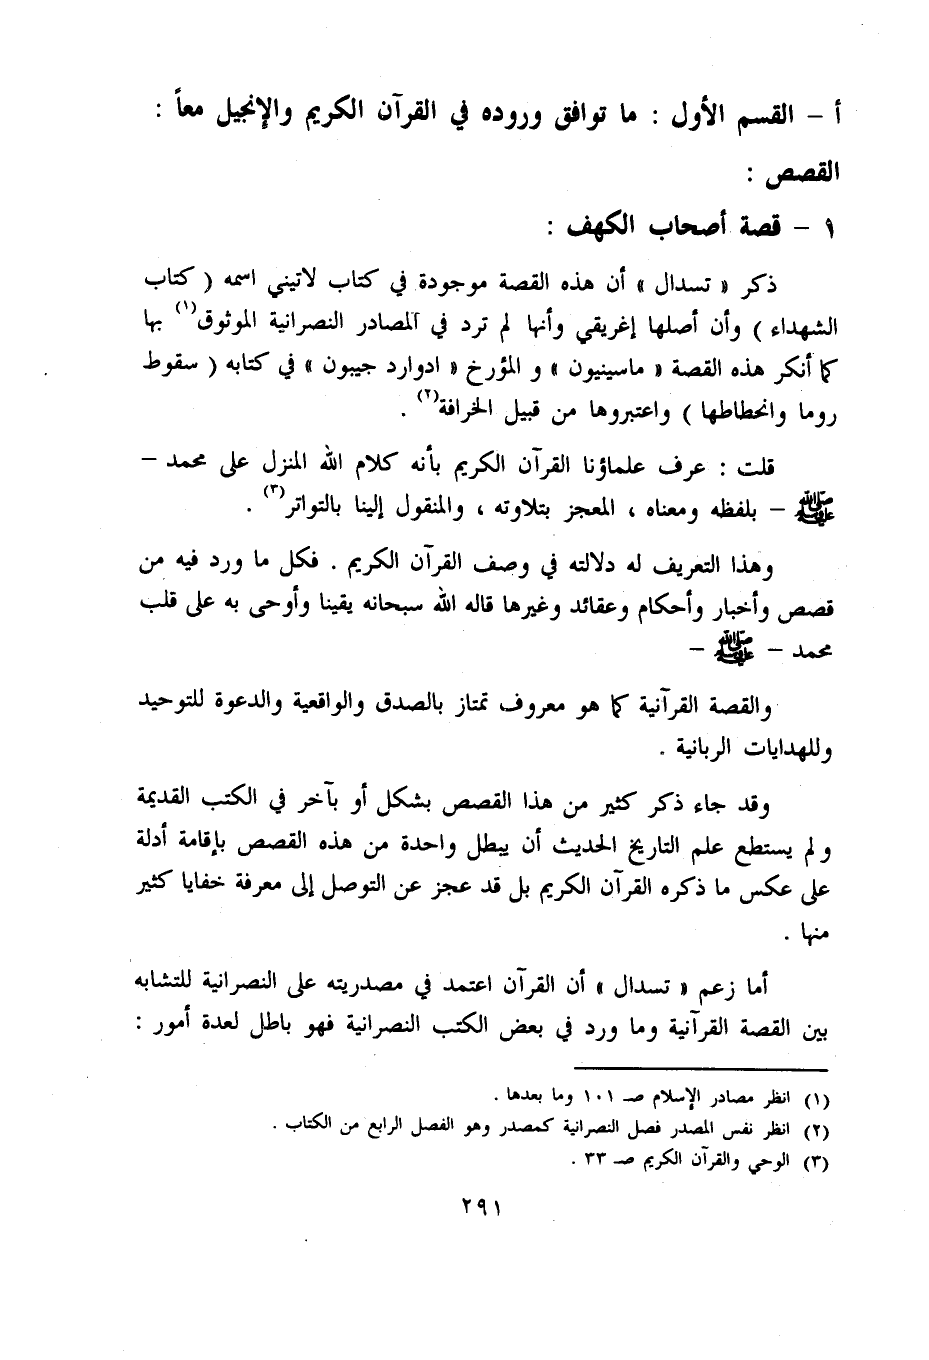 أ – القسم الأول : ما توافق وروده في القرآن الكريم والإنجيل معاً :
القصص :
١ – قصة أصحاب الكهف :
ذكر « تسدال » أن هذه القصة موجودة في كتاب لاتيني اسمه ( كتاب
الشهداء ) وأن أصلها إغريقي وأنها لم ترد في المصادر النصرانية الموثوق(١) بها
كما أنكر هذه القصة « ماسينيون » و المؤرخ « ادوارد جيبون » في كتابه ( سقوط
روما وانحطاطها ) واعتبروها من قبيل الخرافة(٢) .
قلت : عرف علماؤنا القرآن الكريم بأنه كلام الله المنزل على محمد –
ﷺ – بلفظه ومعناه ، المعجز بتلاوته ، والمنقول إلينا بالتواتر(٣) .
وهذا التعريف له دلالته في وصف القرآن الكريم . فكل ما ورد فيه من
قصص وأخبار وأحكام وعقائد وغيرها قاله الله سبحانه يقينا وأوحى به على قلب
محمد – ﷺ –
والقصة القرآنية كما هو معروف تمتاز بالصدق والواقعية والدعوة للتوحيد
وللهدايات الربانية .
وقد جاء ذكر كثير من هذا القصص بشكل أو بآخر في الكتب القديمة
ولم يستطع علم التاريخ الحديث أن يبطل واحدة من هذه القصص بإقامة أدلة
على عكس ما ذكره القرآن الكريم بل قد عجز عن التوصل إلى معرفة خفايا كثير
منها .
أما زعم « تسدال » أن القرآن اعتمد في مصدريته على النصرانية للتشابه
بين القصة القرآنية وما ورد في بعض الكتب النصرانية فهو باطل لعدة أمور :
(١) انظر مصادر الإسلام صـ ١٠١ وما بعدها .
(٢) انظر نفس المصدر فصل النصرانية كمصدر وهو الفصل الرابع من الكتاب .
(٣) الوحي والقرآن الكريم صـ ٣٣ .
٢٩١